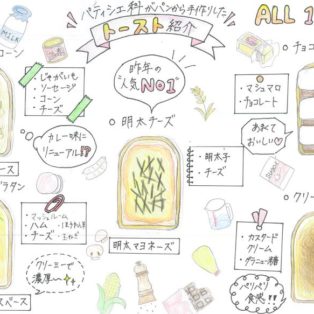 パティシエ科がパンから手作りした
トースト紹介
ALL 1
MILK
コーン
じゃがいも
・ソーセージ
・コーン
・チーズ
カレー味に
リニューアル!?
グラタン
昨年の
人気No1
○明太チーズ
・明太子
・チーズ
○チョコ
・マシュマロ
・チョコレート
あまくて
おいしい♡
ース
・マッシュルーム
・ハム
・チーズ
クリーミーで
濃厚〜
スペース
明太マヨネーズ
○クリー
・カスタード
クリーム
・グラニュー糖
パリパリ
食感!!